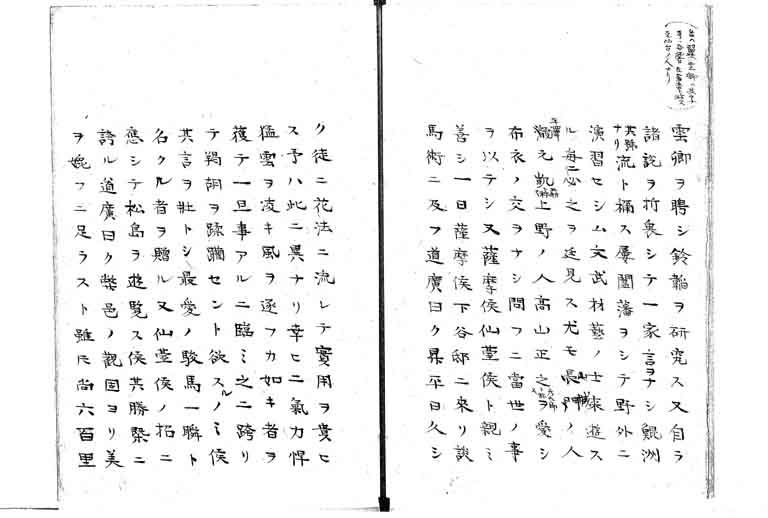 雲卿ヲ聘シ鈴韜ヲ研究ス又自ラ
諸説ヲ折衷シテ一家言ヲナシ鯤洲
其號ナリ
流ト稱ス屢闔藩ヲシテ野外ニ
演習セシム文武材藝ノ士来遊ス
ル毎ニ必之ヲ延見ス尤モ
元凱上野ノ人高山正之ヲ愛シ
布衣ノ交ヲナシ問フニ當世ノ事
ヲ以テシ又薩摩侯仙臺侯ト親ミ
善シ一日薩摩侯下谷邸ニ来リ談
馬術ニ及フ道廣曰ク昇平日久シ
ク徒ニ花法ニ流レテ實用ヲ貴ヒ
ス予ハ此ニ異ナリ幸ヒニ氣力悍
猛雲ヲ凌キ風ヲ逐フカ如キ者ヲ
獲テ一旦事アルニ臨ミ之ニ跨リ
テ羯胡ヲ蹂躙セント欲スルノミ侯
其言ヲ壯トシ最愛ノ駿馬一
ト
名クル者ヲ贈ル又仙臺侯ノ招ニ
應シテ松島ヲ遊覧ス侯其勝槩ニ
誇ル道廣曰ク弊邑ノ觀固ヨリ美
ヲ娩フニ足ラスト雖𪜈尚六百里